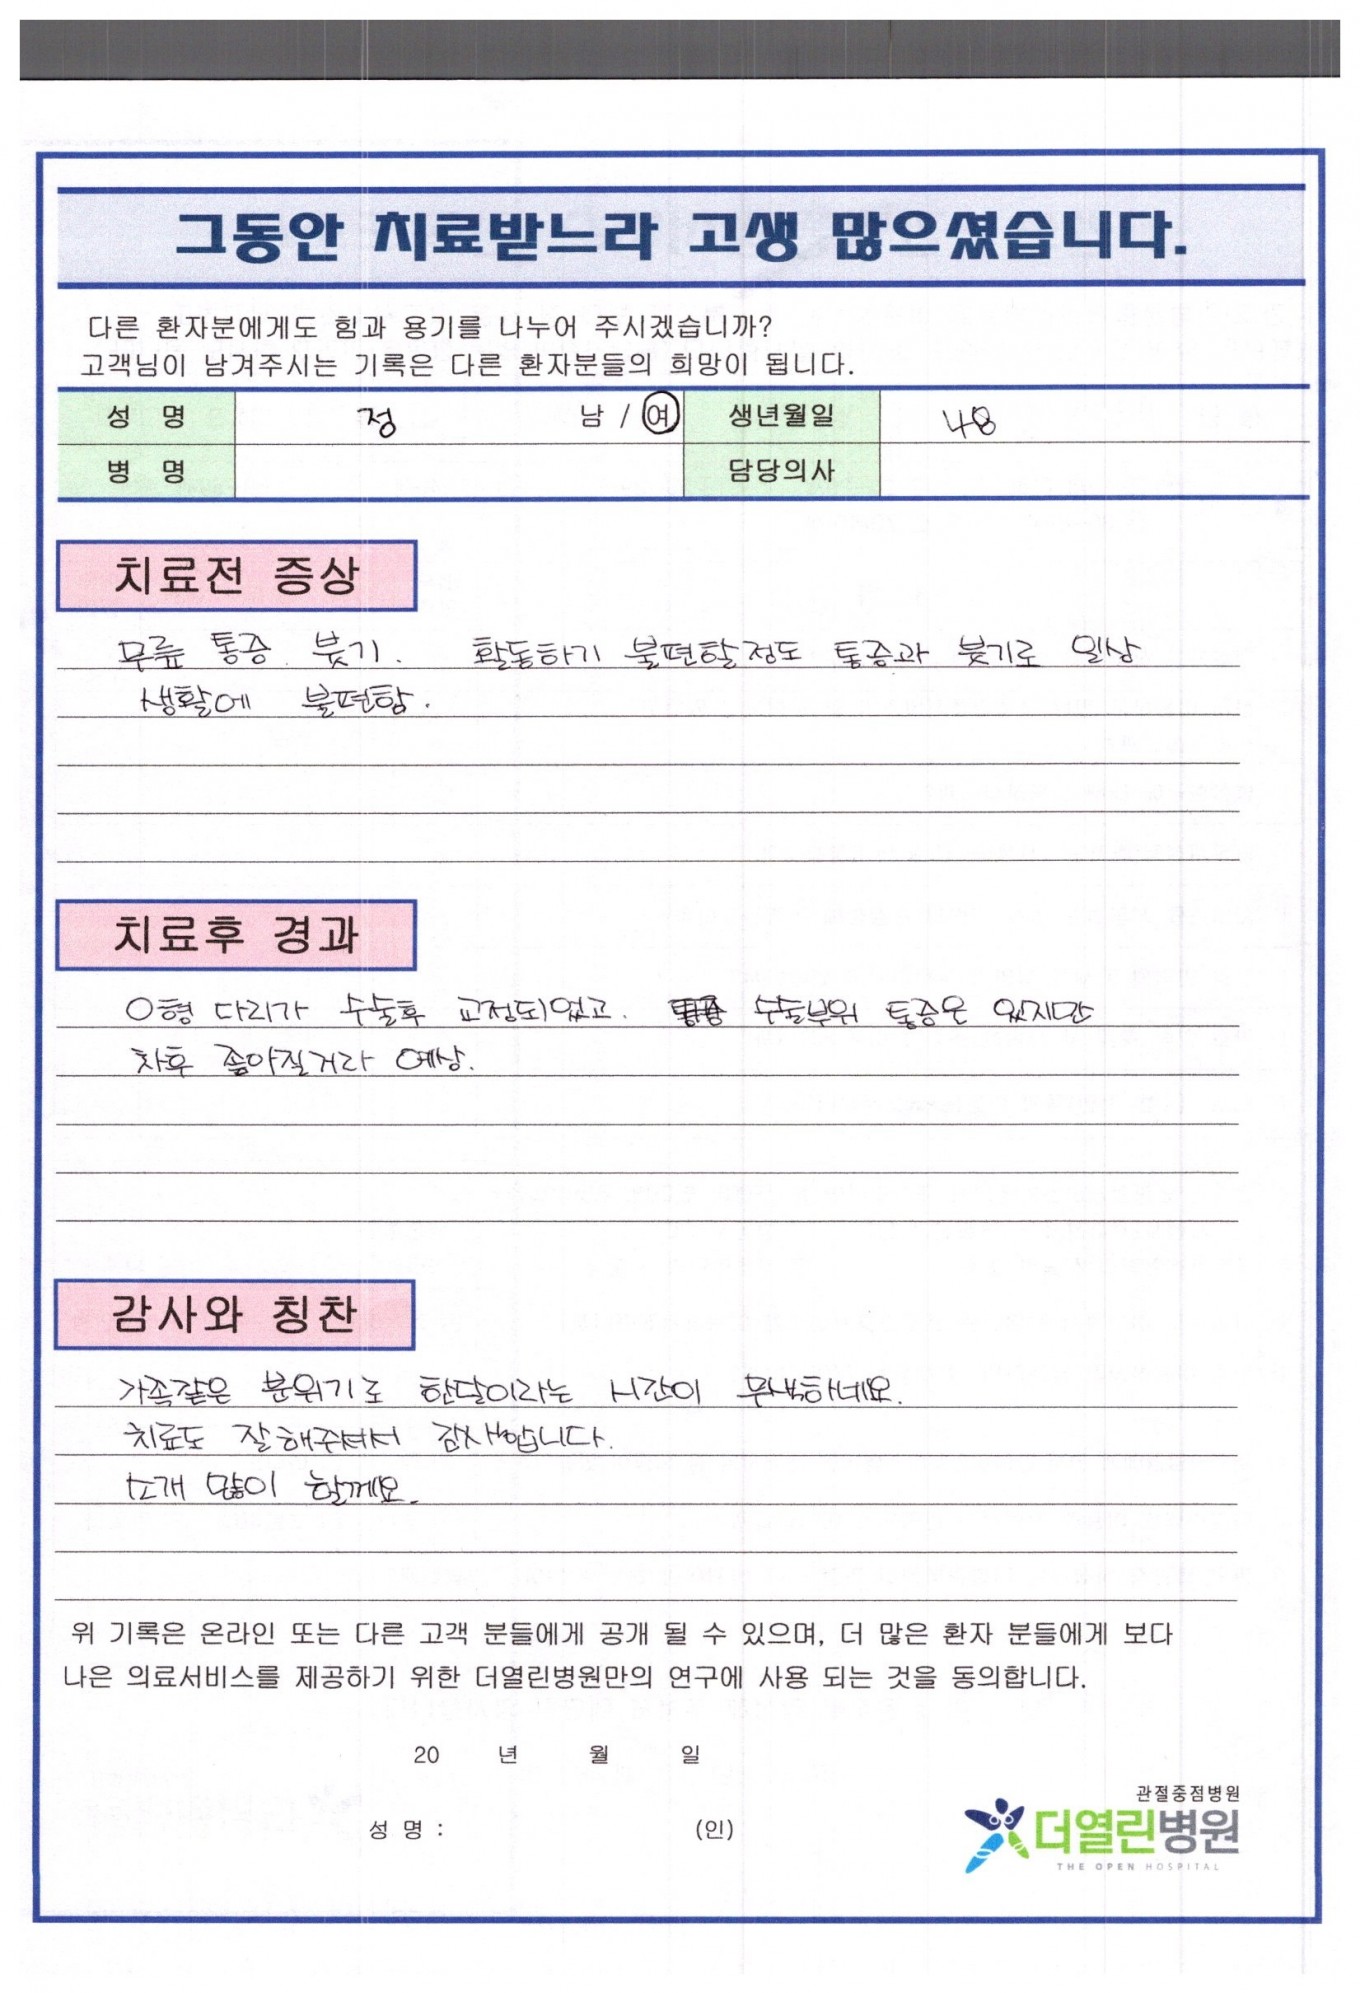 그동안 치료받느라 고생 많으셨습니다.
다른 환자분에게도 힘과 용기를 나누어 주시겠습니까?
고객님이 남겨주시는 기록은 다른 환자분들의 희망이 됩니다.
성 명 정 남 / 여 생년월일 48
병 명 담당의사
치료전 증상
무릎 통증. 붓기. 활동하기 불편할정도 통증과 붓기로 일상
생활에 불편함.
치료후 경과
O형 다리가 수술후 교정되었고. 수술부위 통증은 있지만
차후 좋아질거라 예상.
감사와 칭찬
가족같은 분위기로 한달이라는 시간이 무색하네요.
치료도 잘해주셔서 감사합니다.
소개 많이 할께요.
위 기록은 온라인 또는 다른 고객 분들에게 공개 될 수 있으며, 더 많은 환자 분들에게 보다
나은 의료서비스를 제공하기 위한 더열린병원만의 연구에 사용 되는 것을 동의합니다.
20 년 월 일
성 명 : (인)
관절중점병원
더열린병원
THE OPEN HOSPITAL